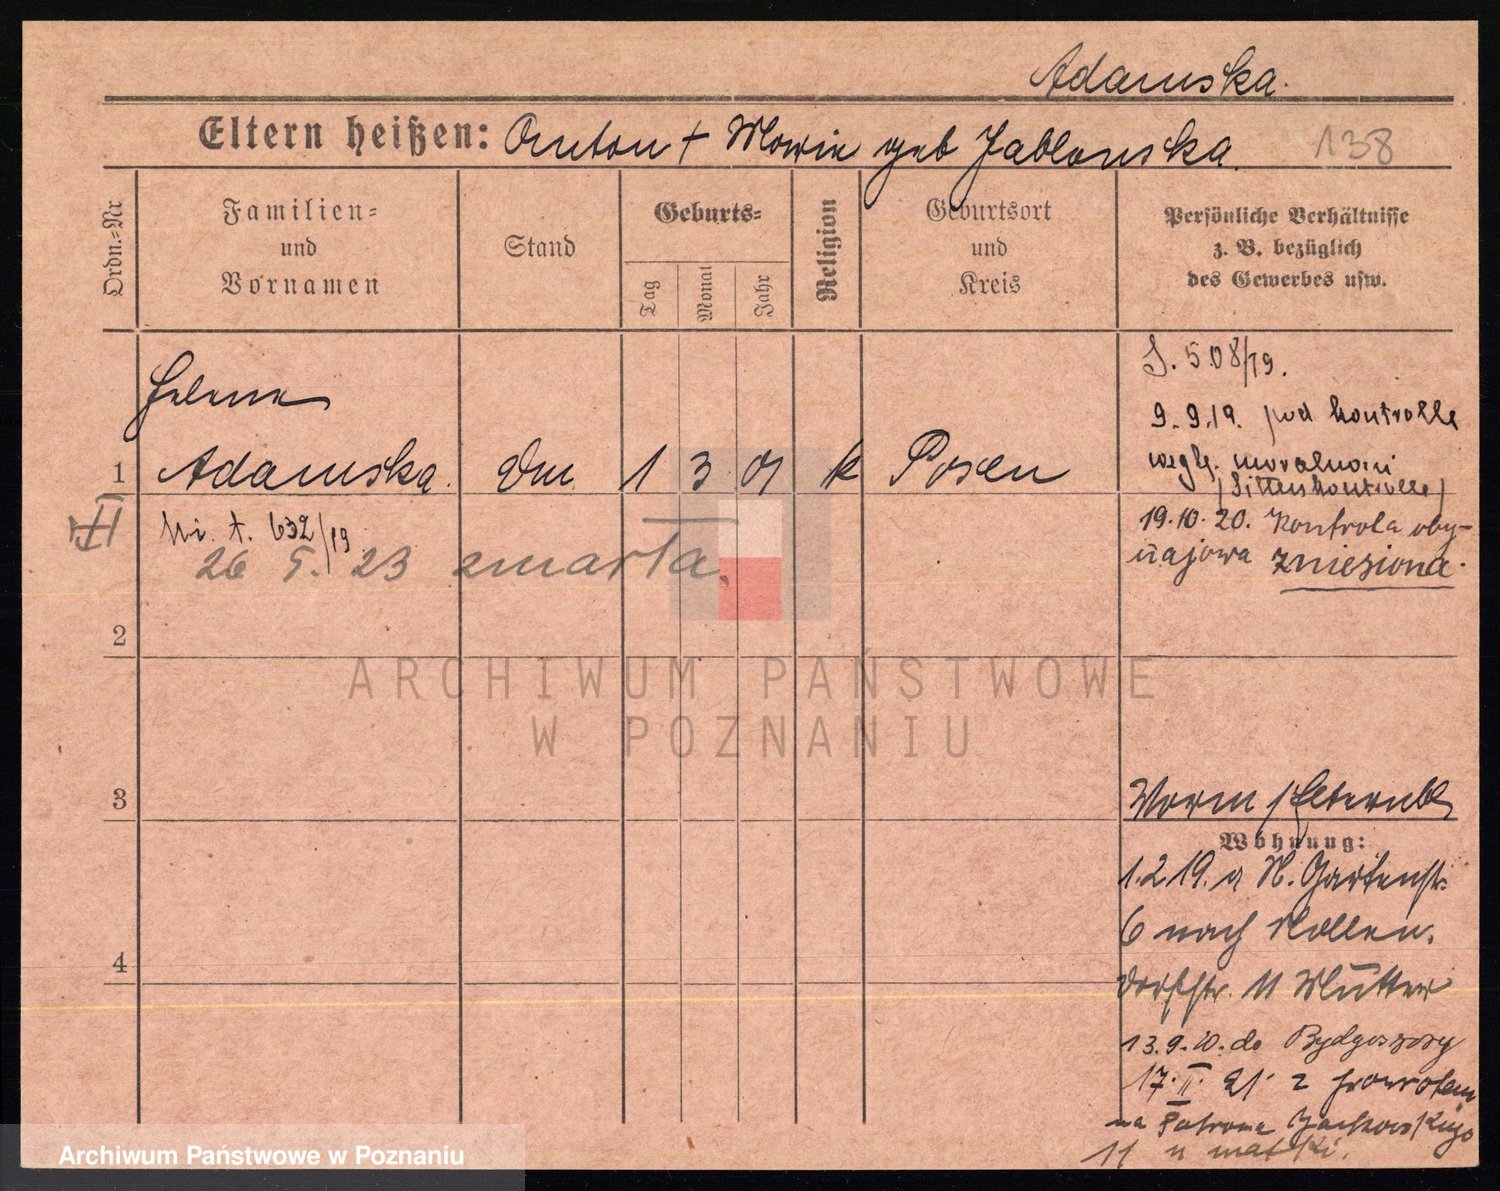 Adamska.
Eltern heißen: Anton + Marie geb Jablonska. 138
Ordn.=Nr
Familien=
und
Vornamen
Stand
Geburts=
Tag
Monat
Jahr
Religion
Geburtsort
und
Kreis
Persönliche Verhältnisse
z. B. bezüglich
des Gewerbes usw.
Helene
1 Adamska. 1 3 01 k Posen
632/19
26 5. 23 zmarła
J. 508/19.
9.9.19. pod kontrolle
wzgl. moralności
(Sittenkontrolle)
19.10.20. Kontrola oby-
czajowa zniesiona.
2
3
4
Wohnung:
1.2.19. a N. Gartenstr.
6 nach Nollen.
dorfstr. 11 Mutter
13.9.20. do Bydgoszczy
17. II. 21. z powrotem
na Patrona Jackowskiego
11 u matki.
ARCHIWUM PAŃSTWOWE
W POZNANIU
Archiwum Państwowe w Poznaniu